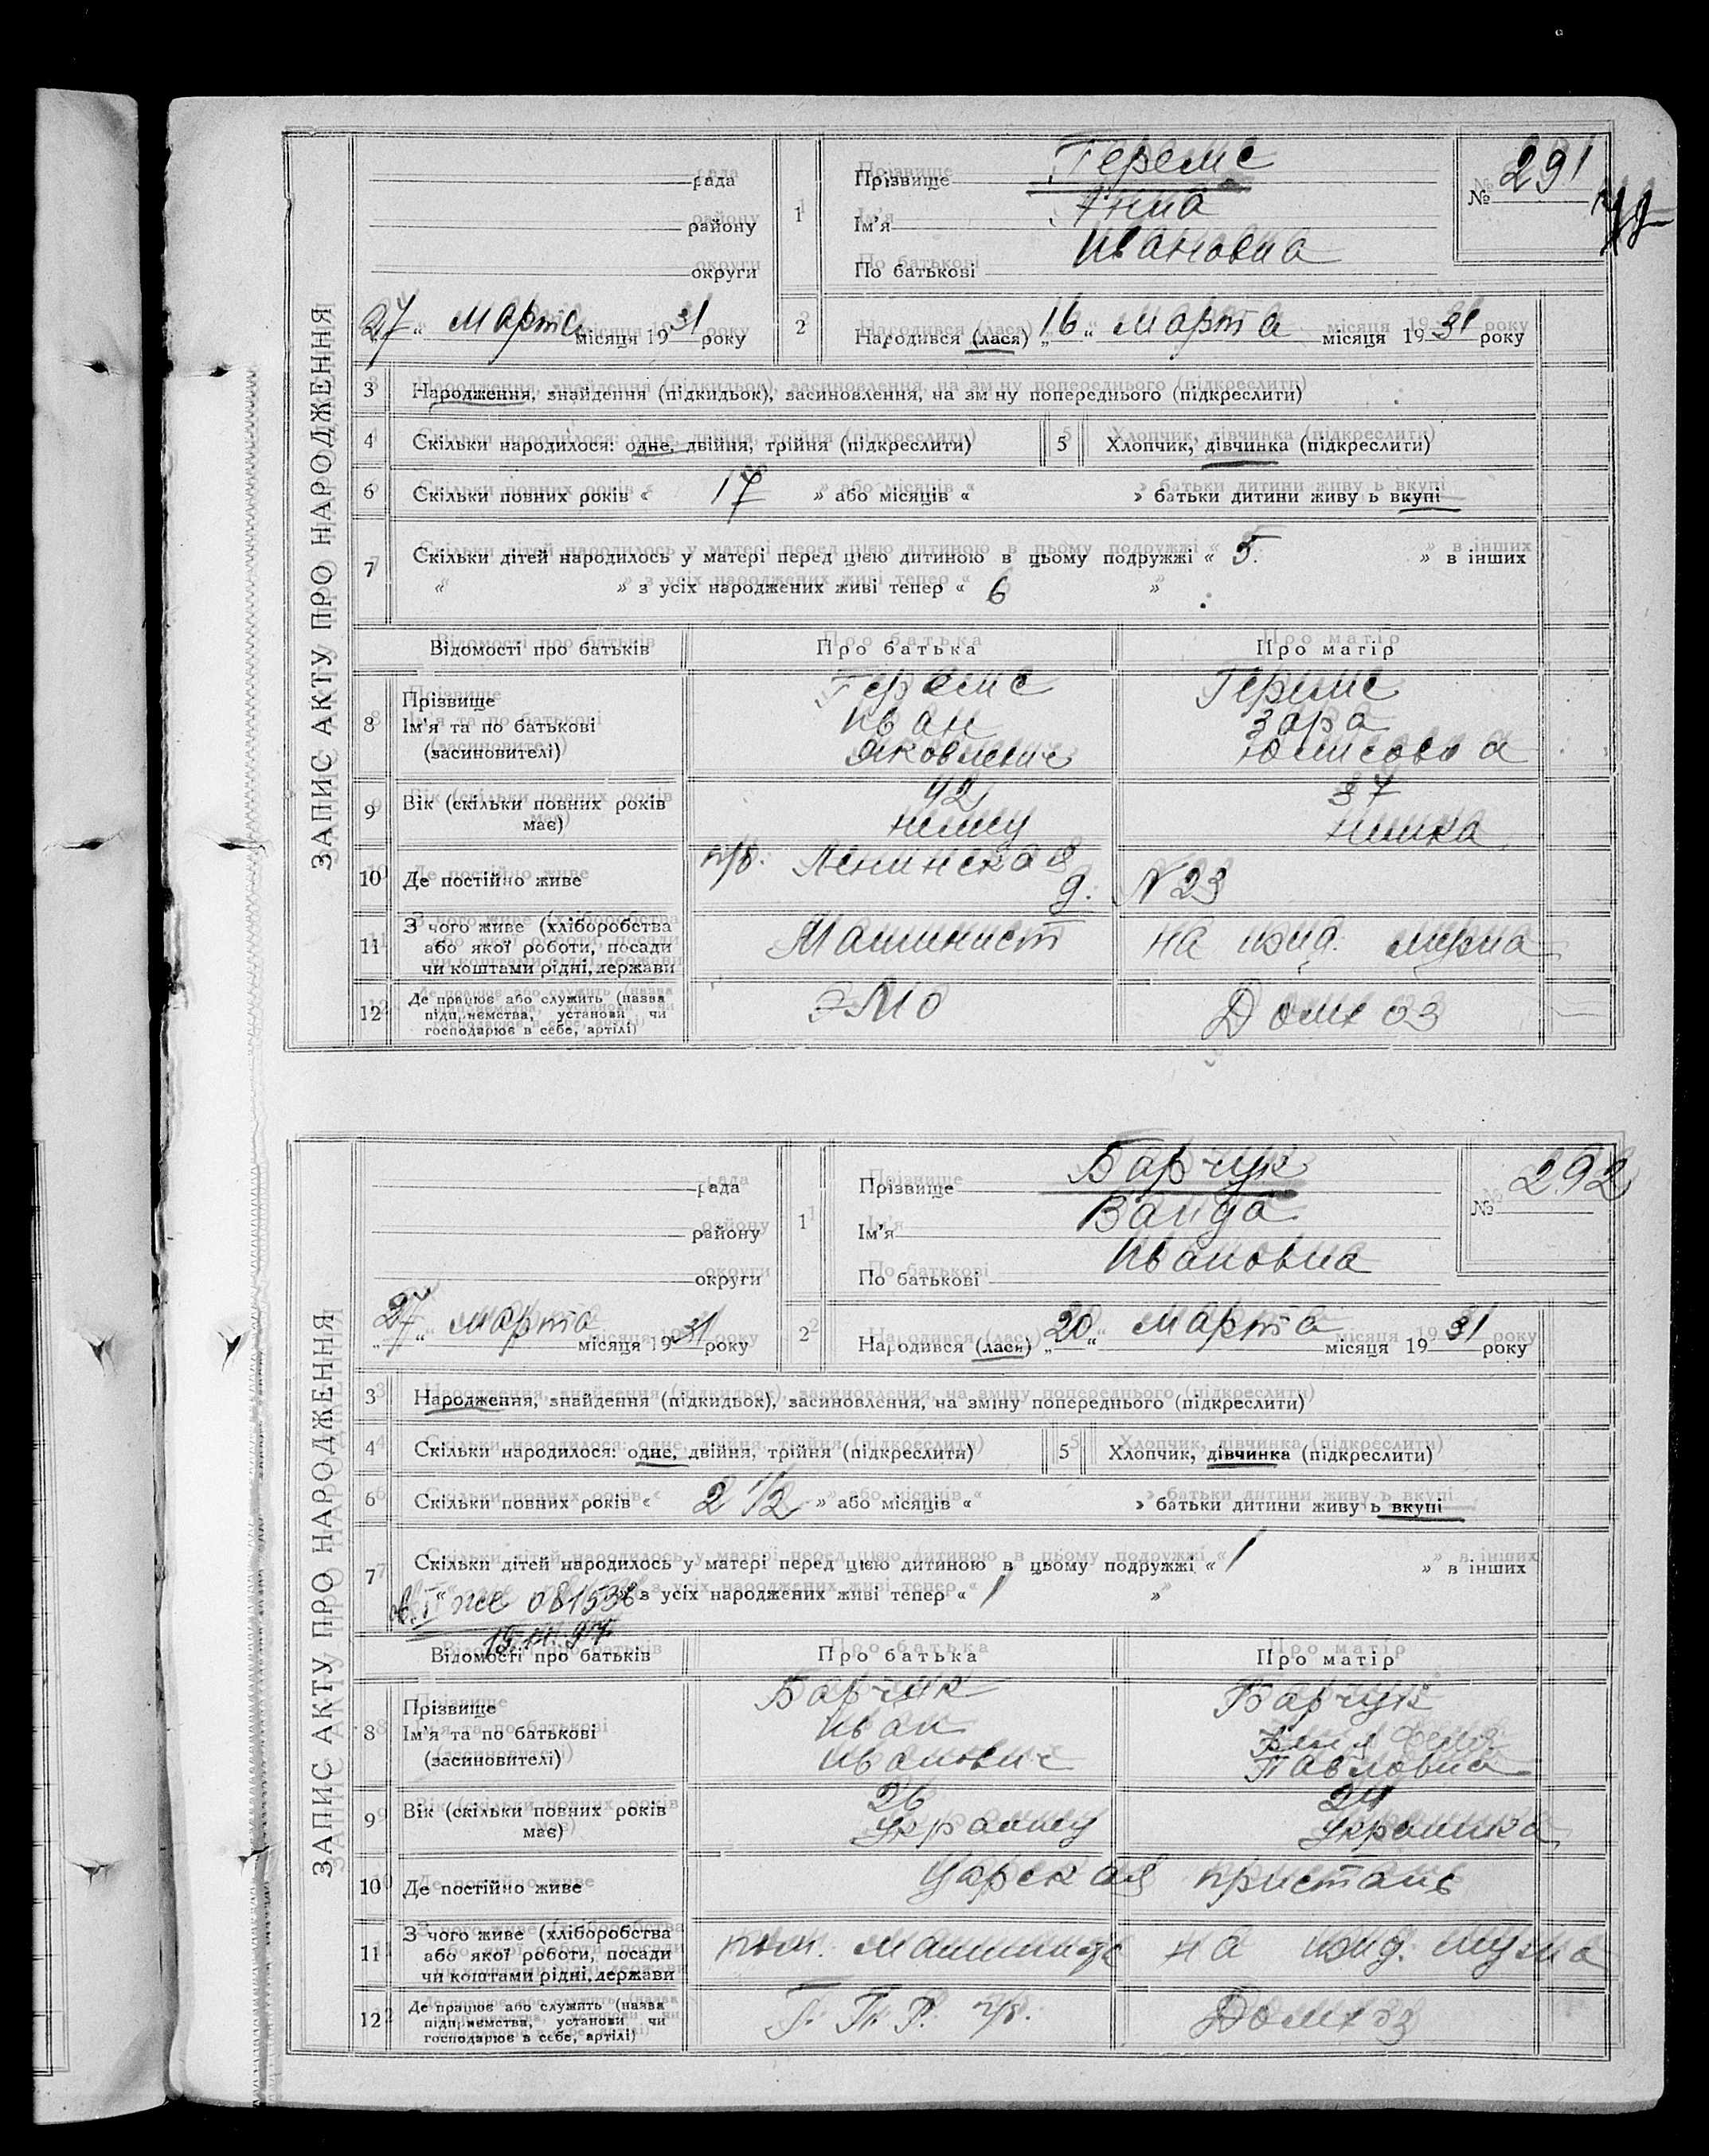 ЗАПИС АКТУ ПРО НАРОДЖЕННЯ
рада
району
округи
1
Прізвище Геремс
Ім'я Анна
По батькові Ивановна
№ 291
27 " Марта місяця 1931 року
2
Народився (лася) „16“ Марта місяця 1931 року
3 Народження, знайдення (підкидьок), засиновлення, на зм ну попереднього (підкреслити)
4 Скільки народилося: одне, двійня, трійня (підкреслити)
5 Хлопчик, дівчинка (підкреслити)
6 Скільки повних років « 17 » або місяців « » батьки дитини живу ь вкупі
7 Скільки дітей народилось у матері перед цією дитиною в цьому подружжі « 5. » в інших
« » з усіх народжених живі тепер « 6 »
Відомості про батьків Про батька Про матір
8 Прізвище Геремс Геремс
Ім'я та по батькові Иван Зара
(засиновителі) Яковлевич
9 Вік (скільки повних років має) 42 37
немец немка
10 Де постійно живе Ленинская д. N 23
11 З чого живе (хліборобства або якої роботи, посади чи коштами рідні, держави Машинист на ижд. мужа
12 Де працює або служить (назва підприємства, установи чи господарює в себе, артілі) Домхоз
ЗАПИС АКТУ ПРО НАРОДЖЕННЯ
рада
району
округи
1
Прізвище Барчук
Ім'я Ванда
По батькові Ивановна
№ 292
„27“ марта місяця 1931 року
2
Народився (лася) „20“ Марта місяця 1931 року
3 Народження, знайдення (підкидьок), засиновлення, на зміну попереднього (підкреслити)
4 Скільки народилося: одне, двійня, трійня (підкреслити)
5 Хлопчик, дівчинка (підкреслити)
6 Скільки повних років « 2 1/2 » або місяців « » батьки дитини живу ь вкупі
7 Скільки дітей народилось у матері перед цією дитиною в цьому подружжі « 1 » в інших
« » з усіх народжених живі тепер « 1 »
Відомості про батьків Про батька Про матір
8 Прізвище Барчук Барчук
Ім'я та по батькові Иван
(засиновителі) Иванович Павловна
9 Вік (скільки повних років має) 26 24
украинец украинка
10 Де постійно живе Царская пристань
11 З чого живе (хліборобства або якої роботи, посади чи коштами рідні, держави пом. машиниста на ижд. мужа
12 Де працює або служить (назва підприємства, установи чи господарює в себе, артілі) Домхоз